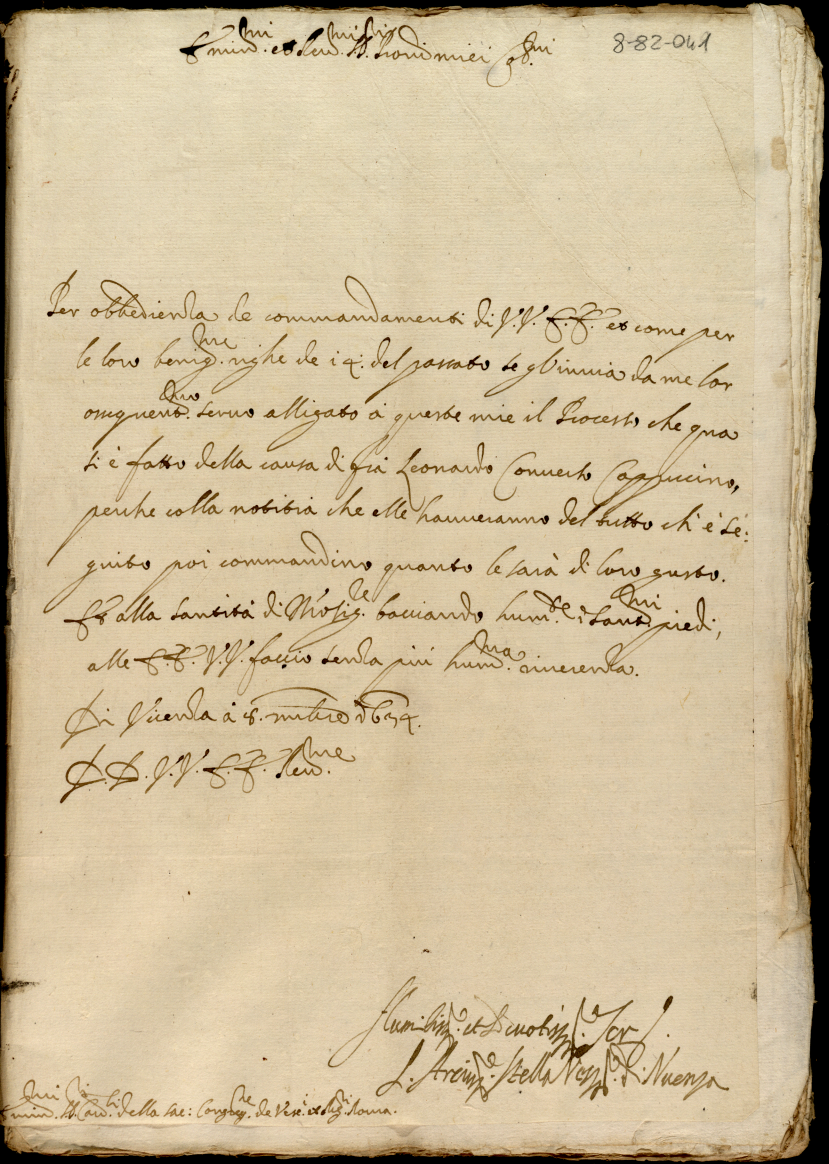 8-82-041
Emin.mi et Reu.mi SS.ri Pad.ni miei Col.mi
Per obbedienza de commandamenti di V.V. E.E. et come per
le loro benig.me righe de 14. del passato se gl'inuia da me lor
ossequent.mo seruo alligato à queste mie il Processo che qua
si è fatto della causa di frà Leonardo Conuerso Cappuccino,
perche colla notitia che elle haueranno del tutto ch' è sé:
guito poi commandino quanto le sarà di loro gusto.
Et alla santità di N'ro Sig.re bacciando hum.te i sant.mi piedi,
alle E.E. V.V. faccio senza più hum.ma riuerenza.
Di Vicenza à 8. 1634.
D.D. V.V. E.E. Reu.me
Humiliss.o et Deuotiss.o Ser
L. Arciu.o Stella Vesc.o di Vicenza
Emin.mi SS.ri Card.li della sac: Congreg.ne de Vesc.i et Reg.ri Roma.